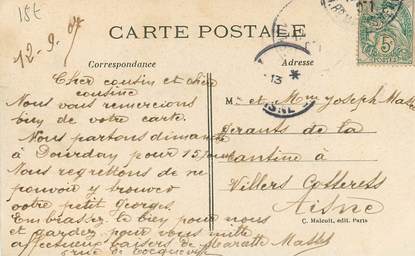 15€
12-9-07
CARTE POSTALE
Correspondance
Adresse
Cher cousin et chère
cousine
Nous vous remercions
bien de votre carte.
Nous partons dimanche
à Dourdan pour 15 jours
Nous regrettons de ne
pouvoir y trouver
votre petit Georges.
Embrassez le bien pour nous
et gardez pour vous mille
affectueux baisers de
rue de Tocqueville
M. et Mme Joseph
Gérants de la
Cantine à
Villers Cotterets
Aisne
C. Malcuit, édit. Paris
13 *
AISNE
5